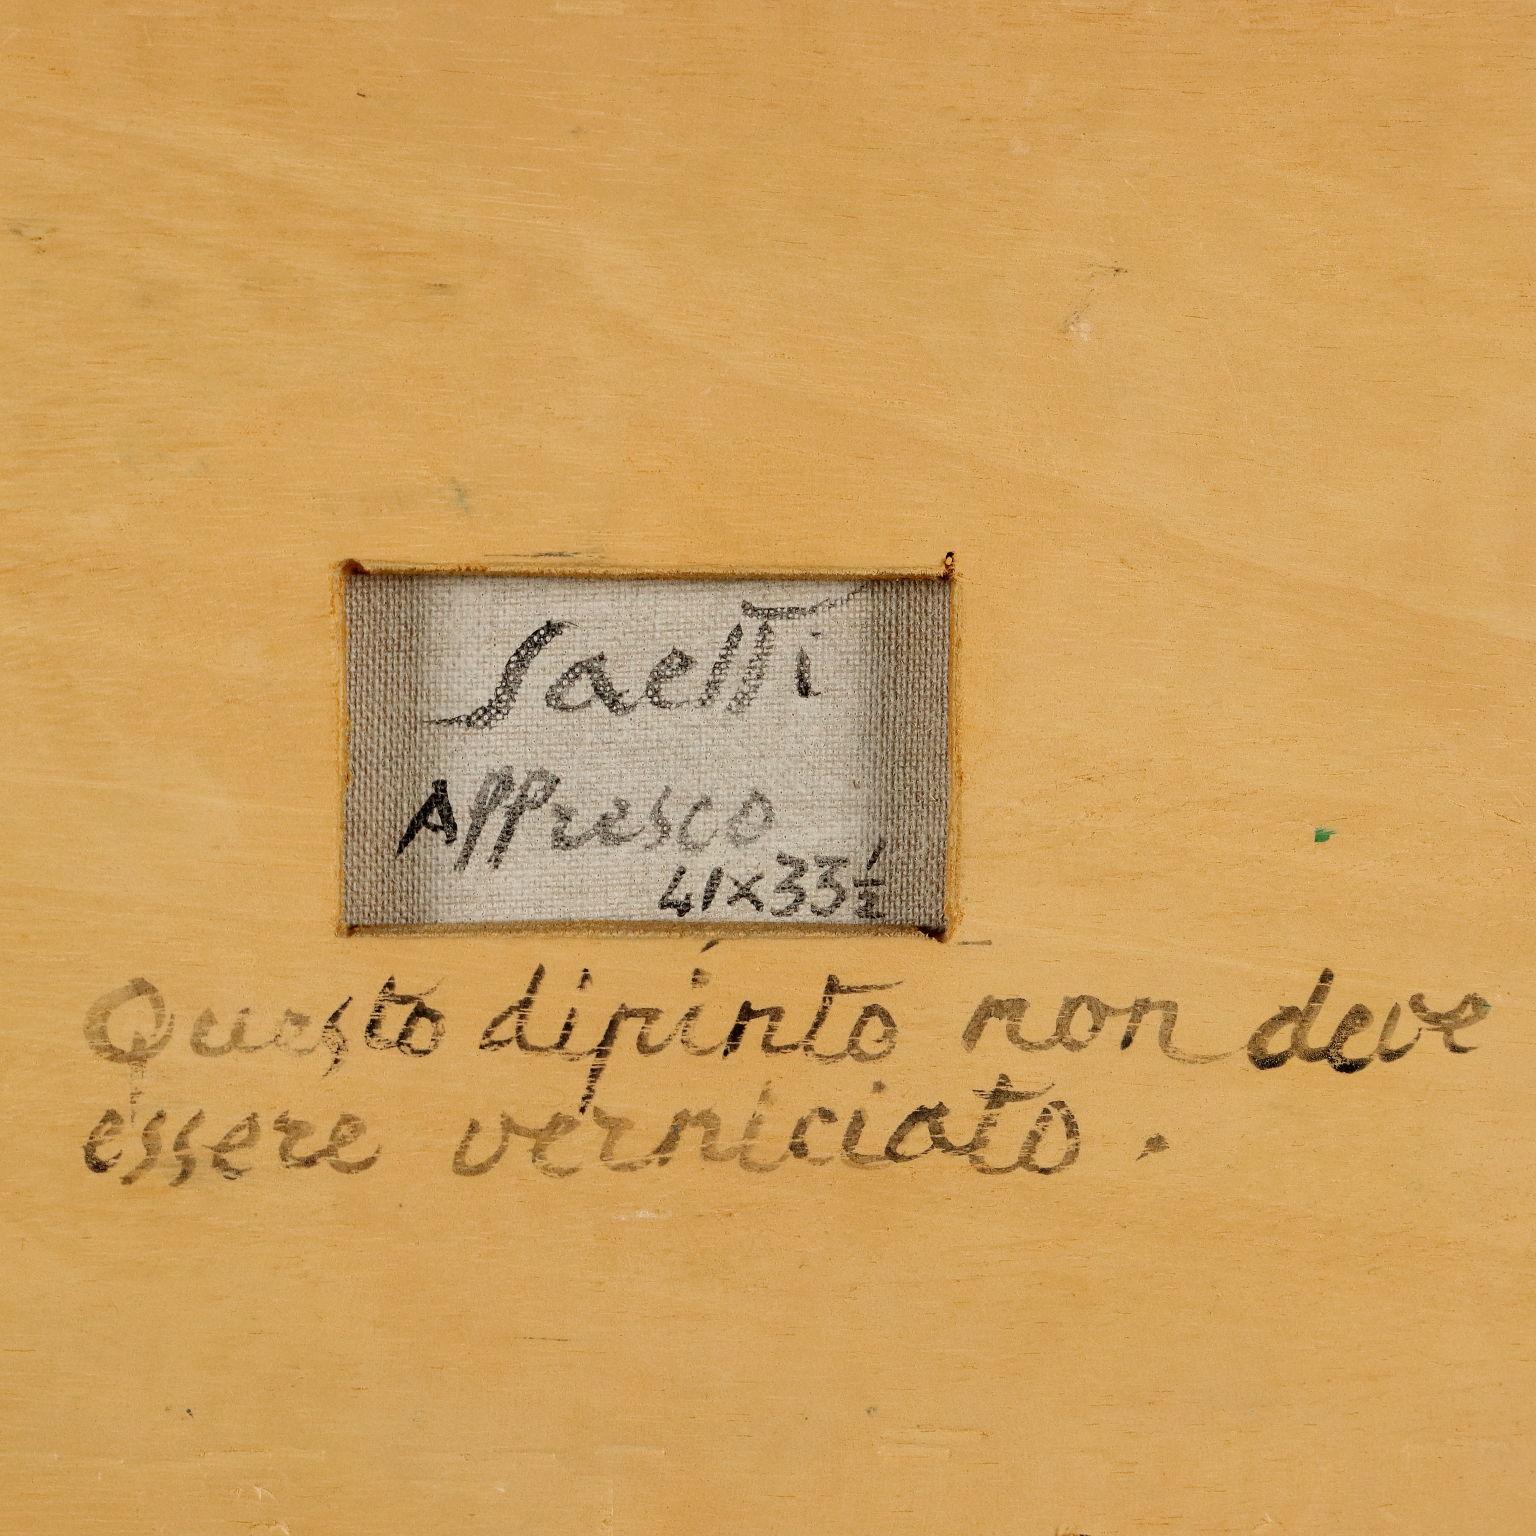 Saetti
Affresco
41x33½
Questo dipinto non deve
essere verniciato.